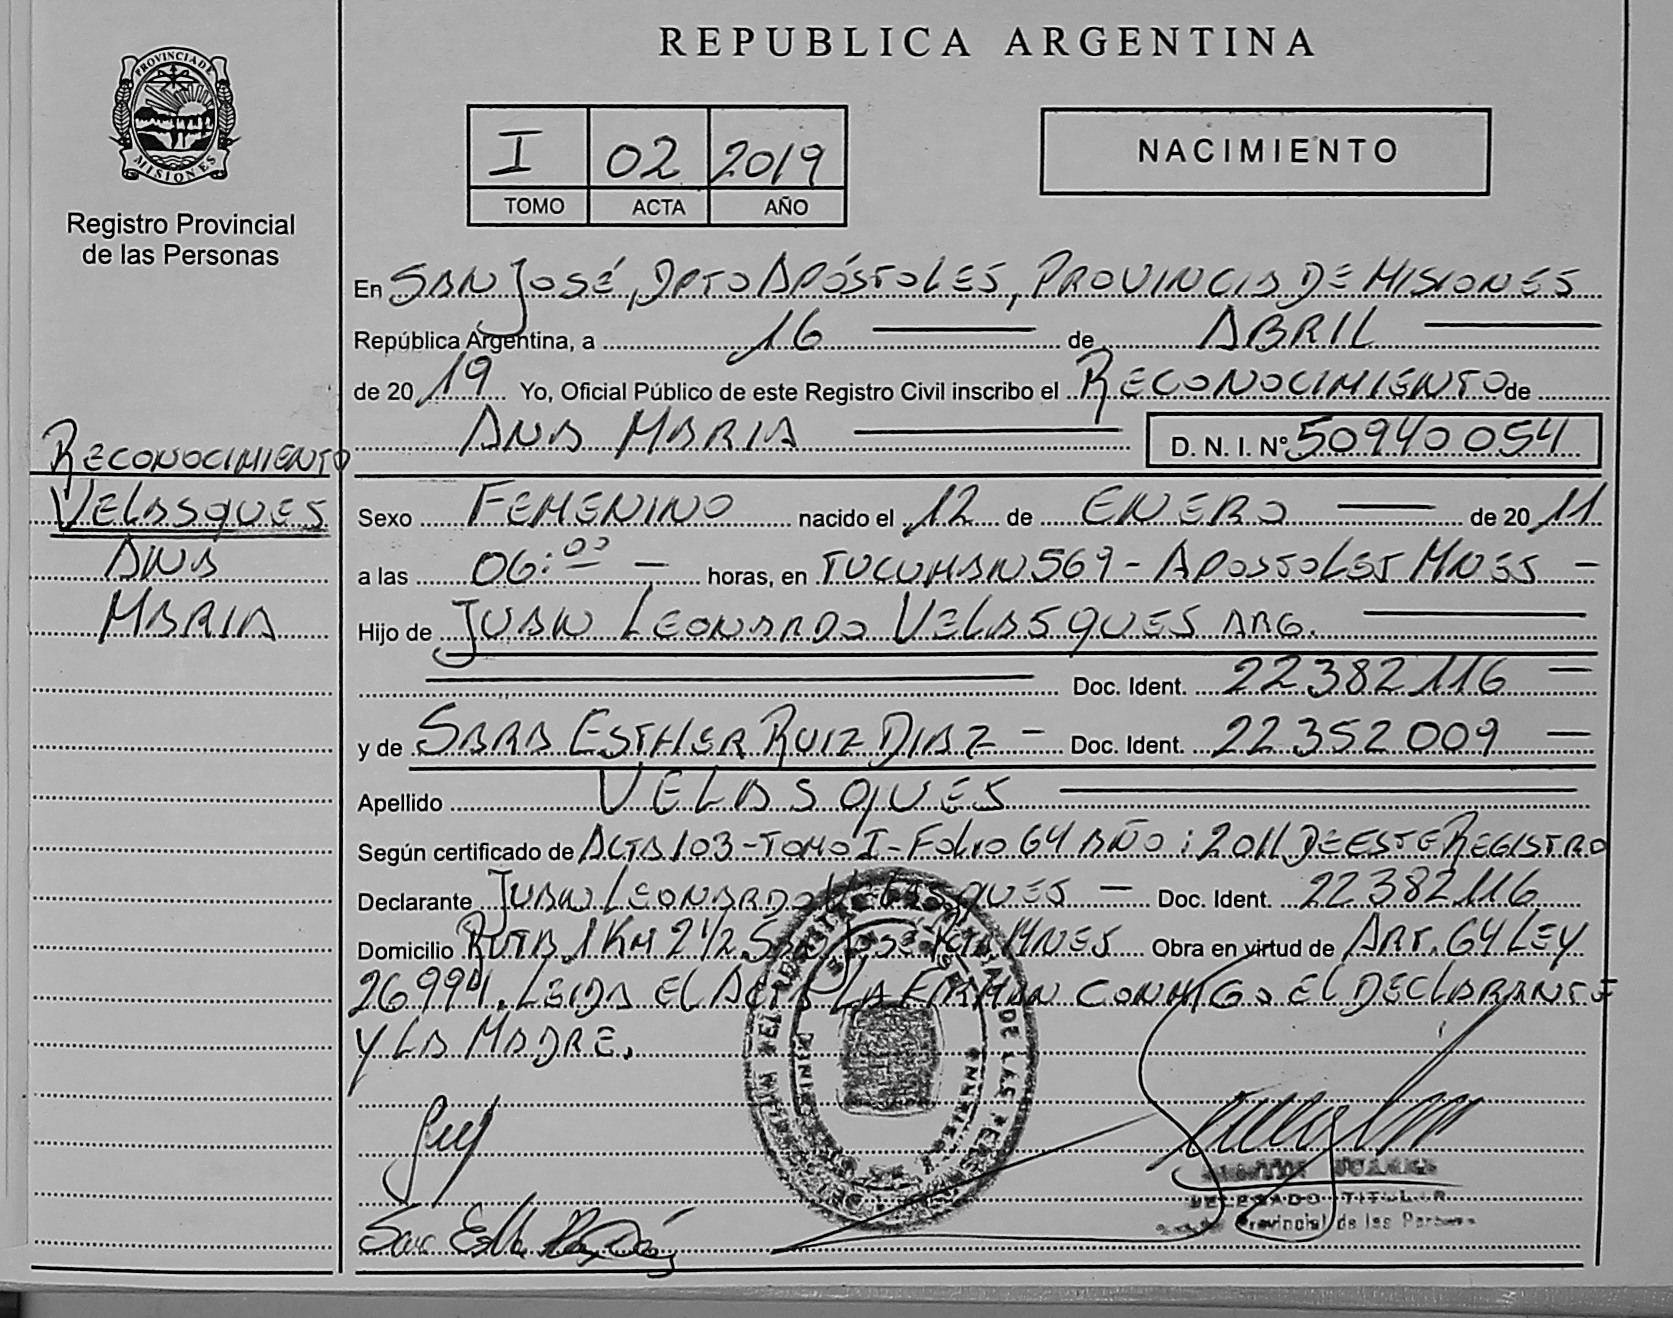 REPUBLICA ARGENTINA
PROVINCIA DE
MISIONES
Registro Provincial
de las Personas
I 02 2019
TOMO ACTA AÑO
NACIMIENTO
En SAN JOSÉ, DPTO APÓSTOLES, PROVINCIA DE MISIONES
República Argentina, a 16 de ABRIL
de 2019 Yo, Oficial Público de este Registro Civil inscribo el RECONOCIMIENTO de
ANA MARIA D. N. I. Nº 50940054
RECONOCIMIENTO
VELASQUES
ANA
MARIA
Sexo FEMENINO nacido el 12 de ENERO de 2011
a las 06:00 horas, en TUCUMAN 569 - APOSTOLES MNES
Hijo de JUAN LEONARDO VELASQUES ARG.
Doc. Ident. 22382116
y de SARA ESTHER RUIZ DIAZ Doc. Ident. 22352009
Apellido VELASQUES
Según certificado de ACTA 103 - TOMO I - FOLIO 64 AÑO: 2011 DE ESTE REGISTRO
Declarante JUAN LEONARDO VELASQUES Doc. Ident. 22382116
Domicilio RUTA 1 KM 2 1/2 SAN JOSÉ MNES Obra en virtud de ART. 64 LEY
26994. LEIDA EL ACTA LA FIRMAN CONMIGO EL DECLARANTE
Y LA MADRE.
DELEGADO TITULAR
Provincial de las Personas